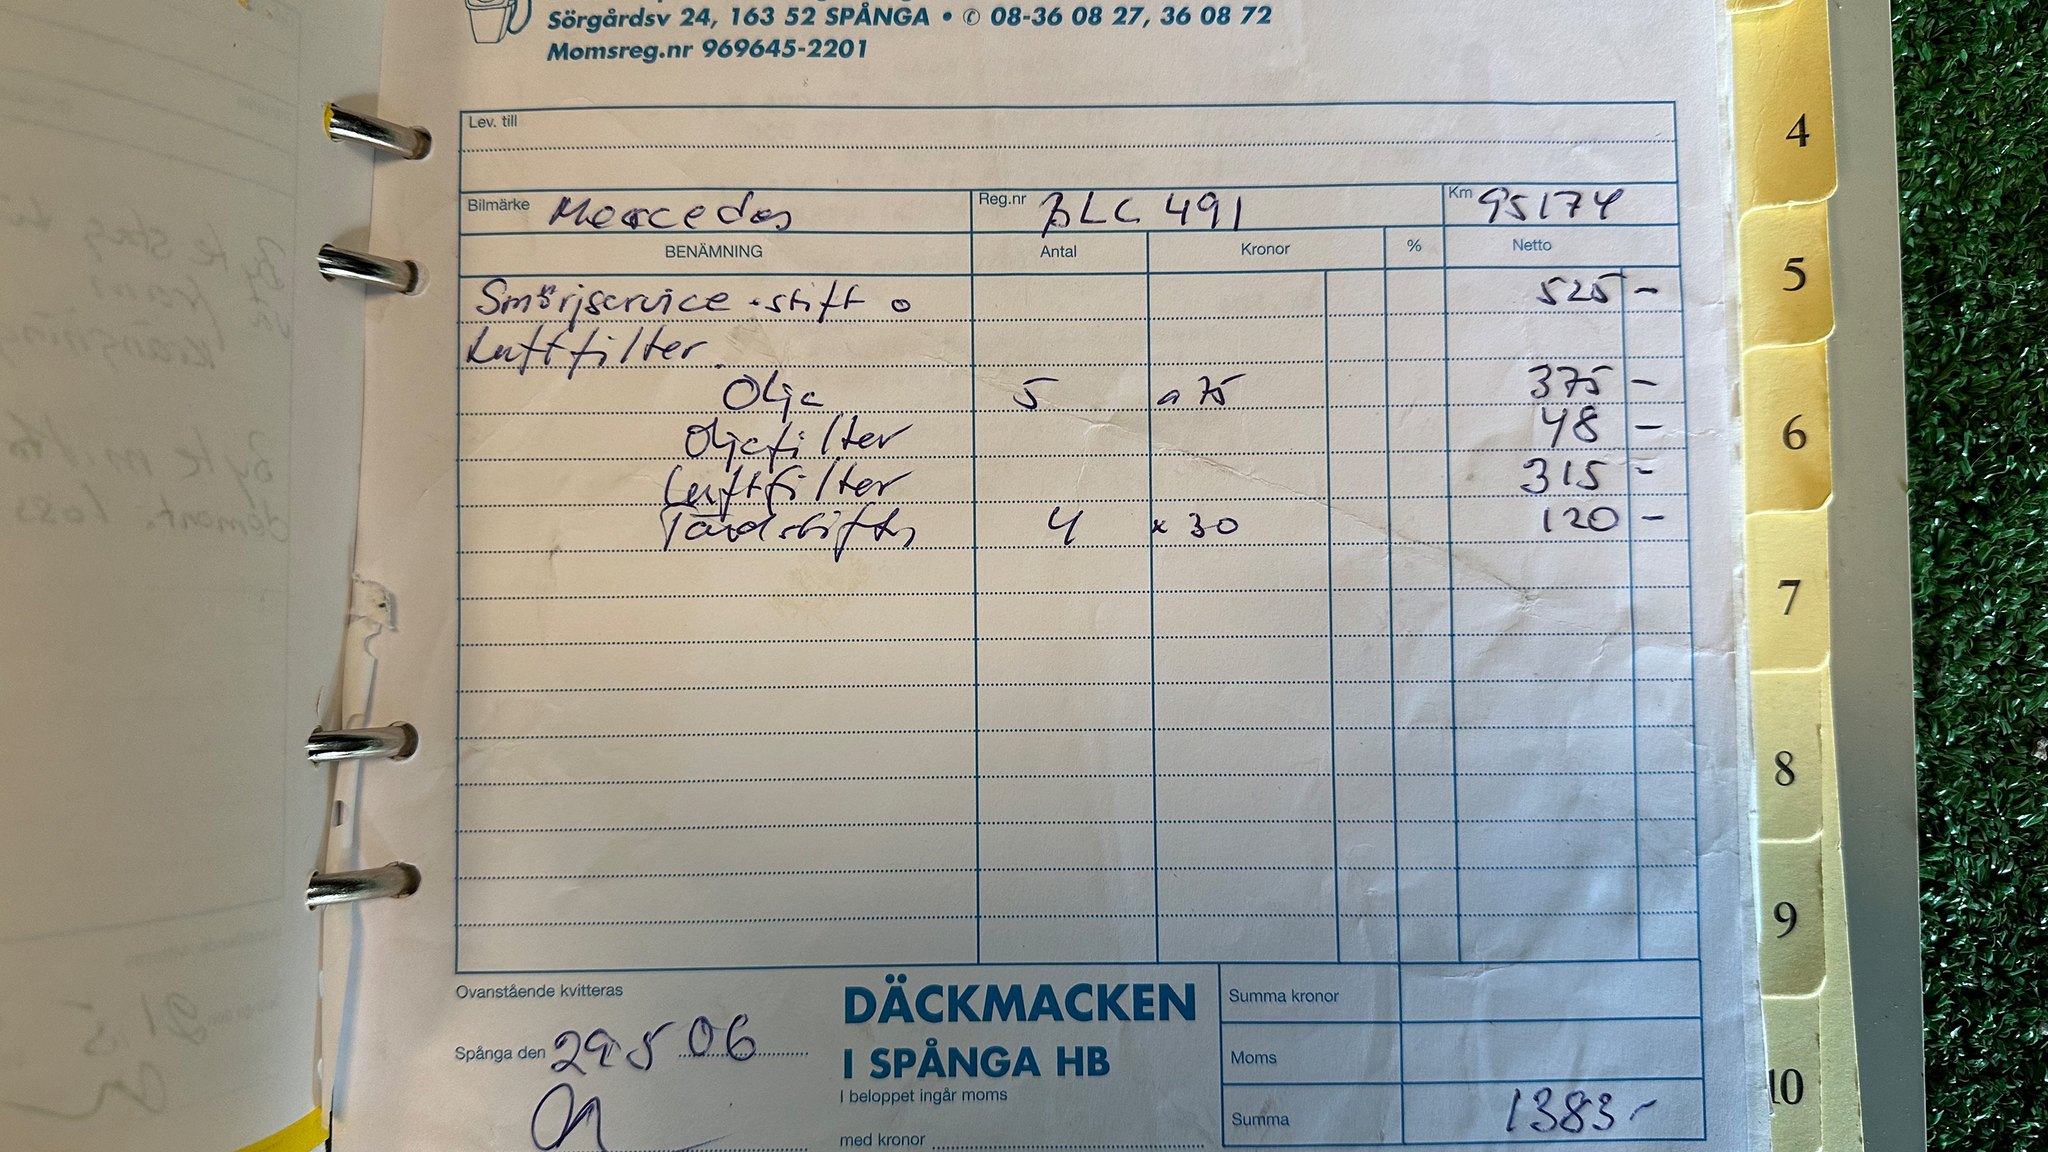 Sörgårdsv 24, 163 52 SPÅNGA • ✆ 08-36 08 27, 36 08 72
Momsreg.nr 969645-2201
Lev. till
Bilmärke Mercedes Reg.nr BLC 491 Km 95174
BENÄMNING Antal Kronor % Netto
Smörjservice + stift o 525 -
Luftfilter
Olja 5 a 75 375 -
Oljefilter 48 -
Luftfilter 315 -
Tändstift 4 x 30 120 -
Ovanstående kvitteras
Spånga den 29.5 06
DÄCKMACKEN
I SPÅNGA HB
I beloppet ingår moms
med kronor
Summa kronor
Moms
Summa 1383-
4
5
6
7
8
9
10